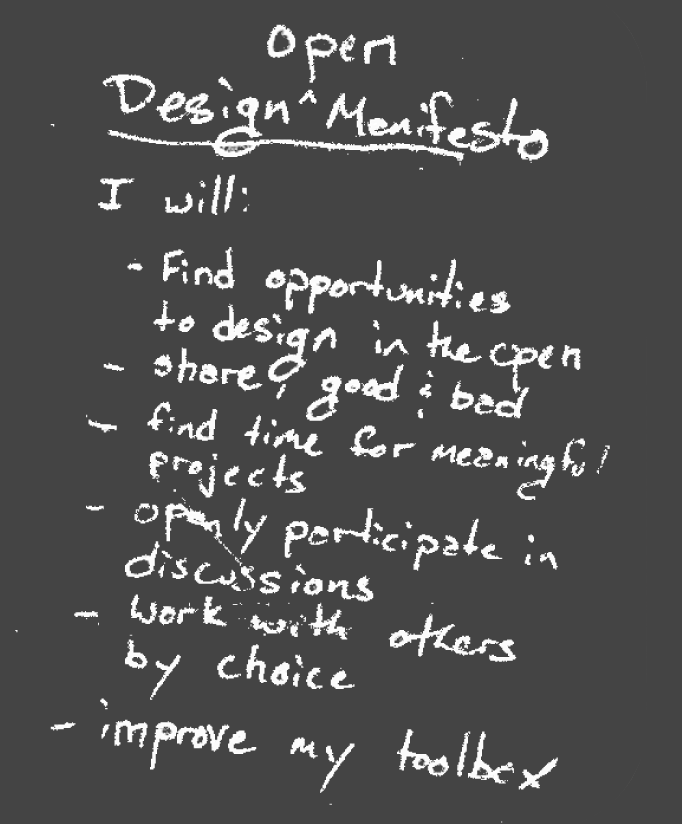 Open
Design ^ Manifesto
I will:
- Find opportunities
to design in the open
- share, good & bad
- find time for meaningful
projects
- openly participate in
discussions
- work with others
by choice
- improve my toolbox